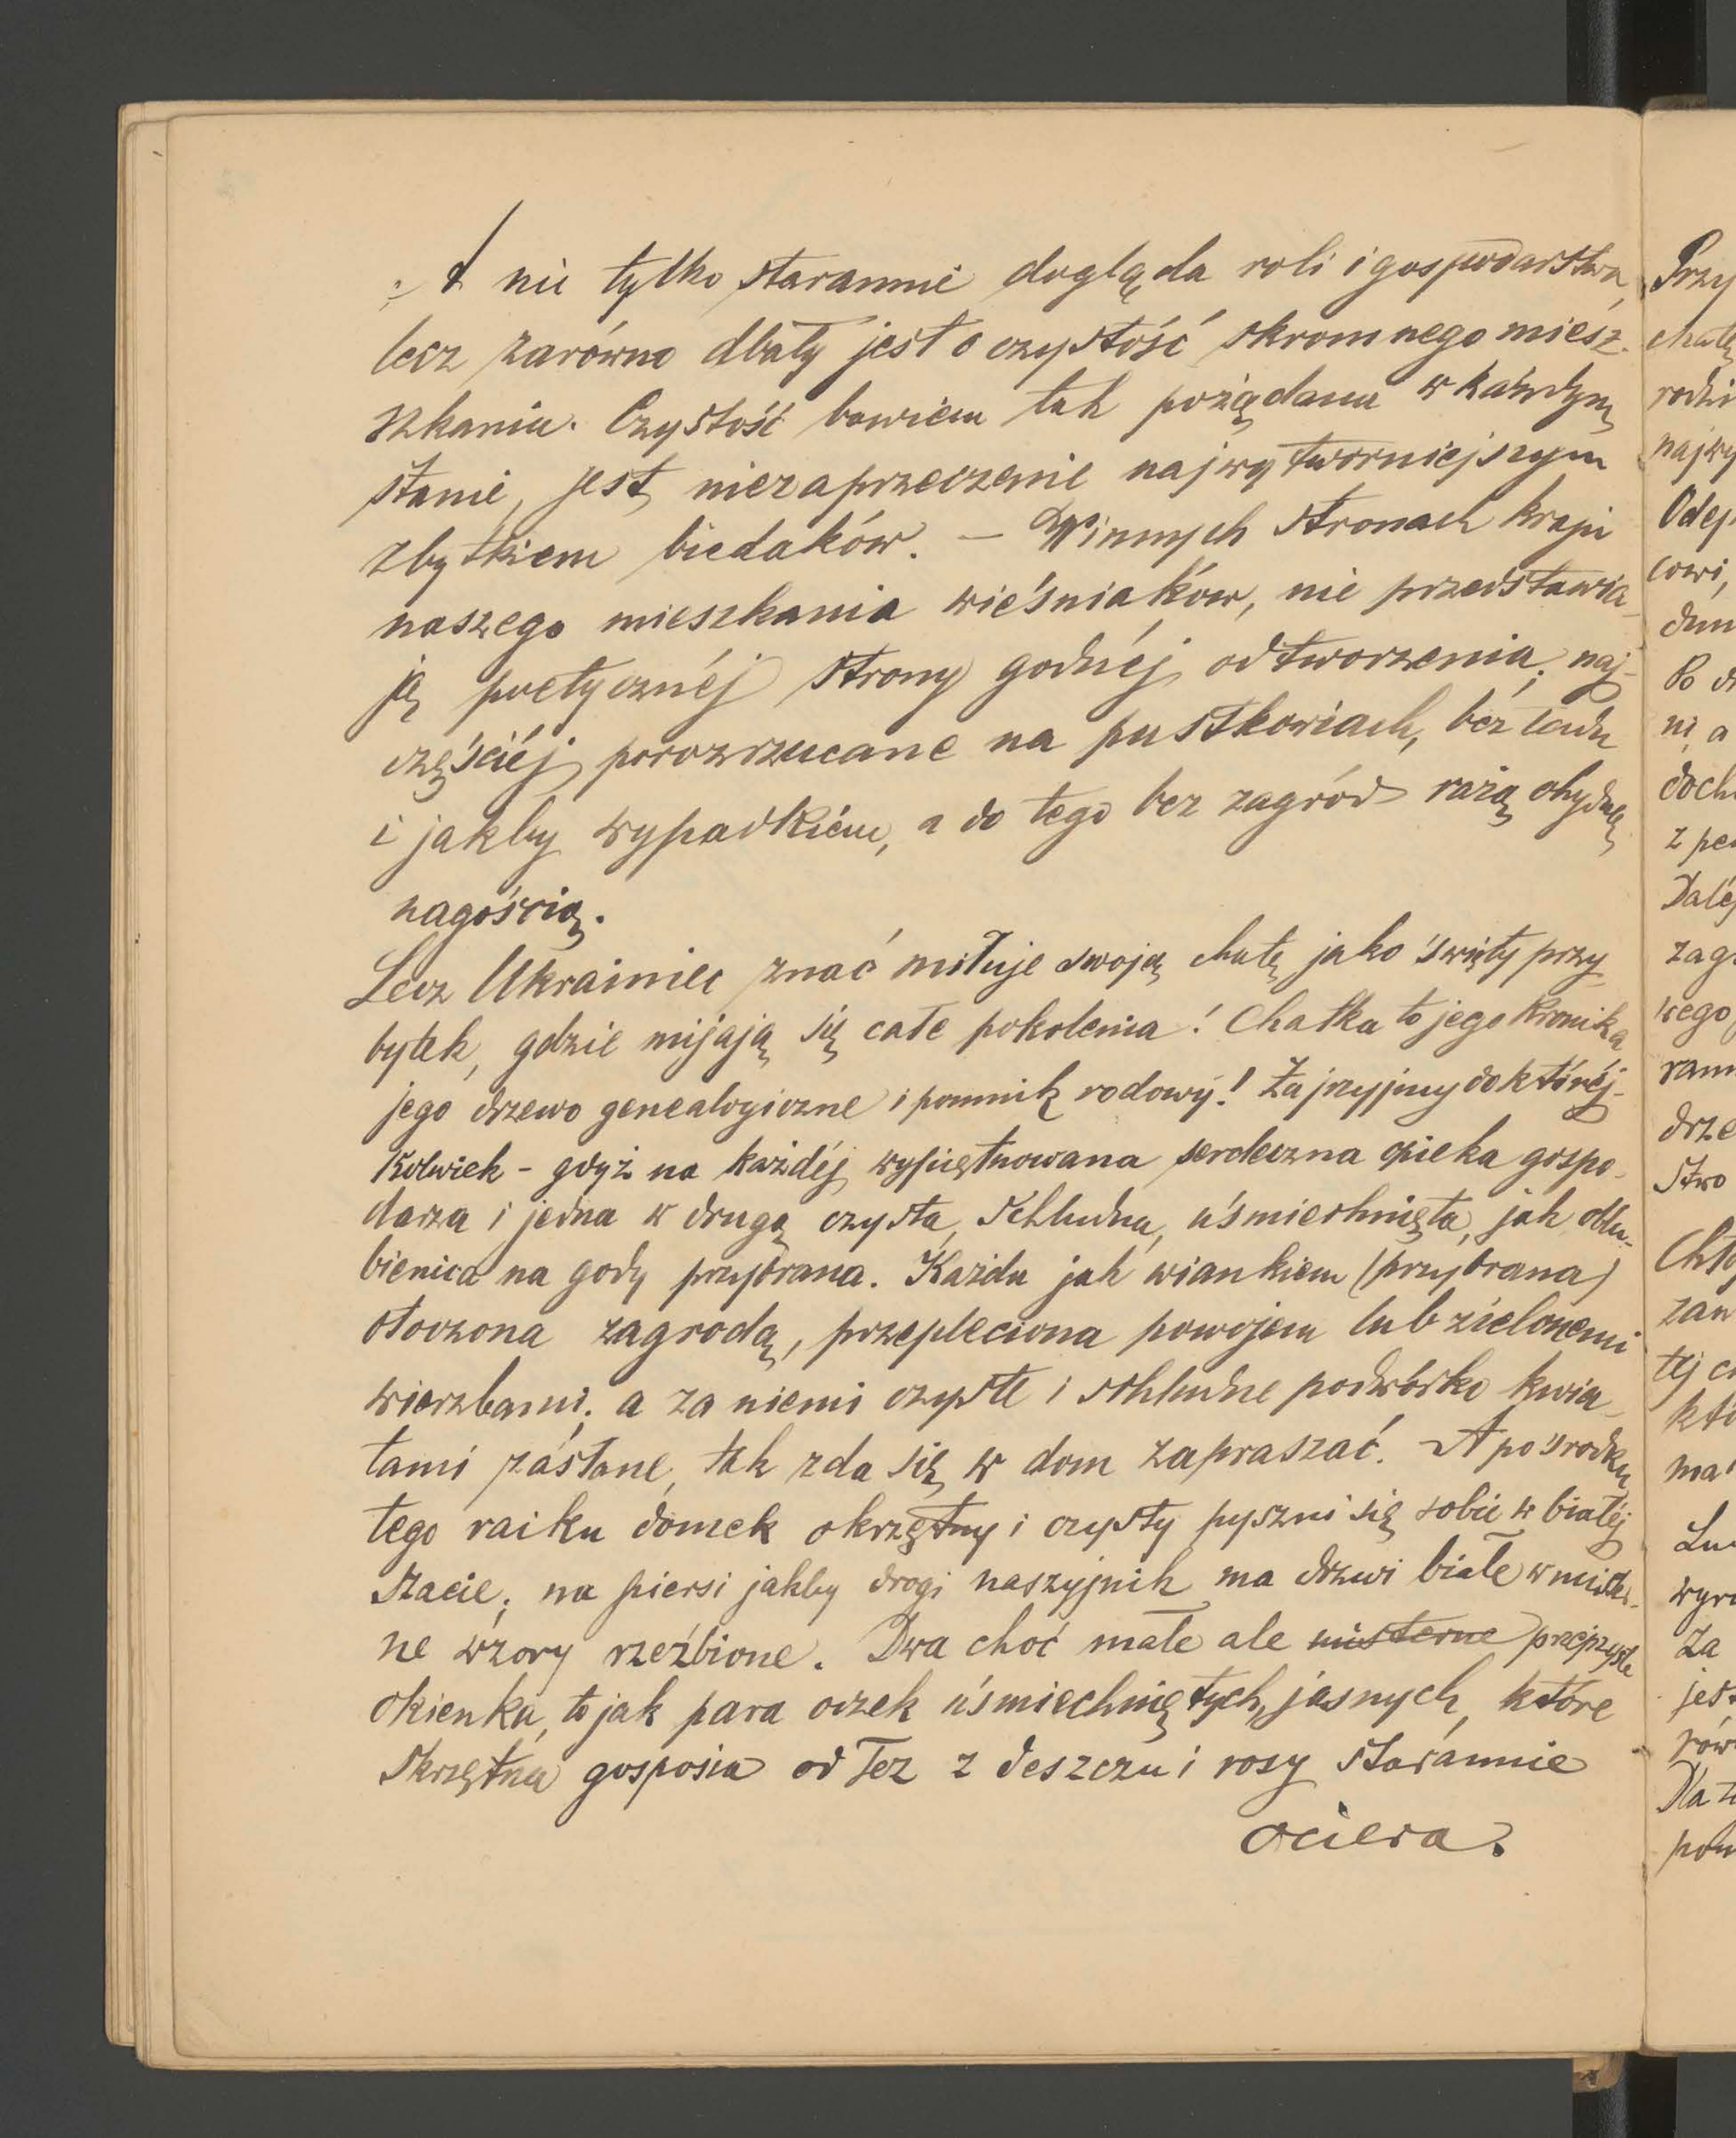 I nie tylko starannie dogląda roli i gospodarstwa,
lecz zarówno dbały jest o czystość skromnego miesz-
szkania. Czystość bowiem tak pożądana w każdym
stanie, jest niezaprzeczenie najwytworniejszym
zbytkiem biedaków. – W innych stronach kraju
naszego mieszkania wieśniaków, nie przedstawia-
ją poetycznéj strony godnéj odtworzenia; naj-
częściéj porozrzucane na pustkowiach, bez ładu
i jakby wypadkiem, a do tego bez zagród rażą ohydną
nagością.
Lecz Ukrainiec znać miłuje swoją chatę jako święty przy-
bytek, gdzie mijają się całe pokolenia! Chatka to jego kronika
jego drzewo genealogiczne i pomnik rodowy! Zajrzyjmy do któréj-
kolwiek - gdyż na każdéj wypiętnowana serdeczna opieka gospo-
darza i jedna w drugą czysta, schludna, uśmiechnięta, jak oblu-
bienica na gody przybrana. Każda jak wiankiem (przybrana)
otoczona zagrodą, przepleciona powojem lub zielonemi
wierzbami; a za niemi czyste i schludne podwórko kwia-
tami zasłane, tak zda się w dom zapraszać. A pośrodku
tego raiku domek okrzętny i czysty pyszni się sobie w białéj
szacie; na piersi jakby drogi naszyjnik ma drzwi białe w mister-
ne wzory rzeźbione. Dwa choć małe ale misterne przejrzyste
okienka, to jak para oczek uśmiechniętych, jasnych, które
skrzętna gosposia od łez z deszczu i rosy starannie
ociera.
Przy
chatę
rodzi
najwy
Odej
cowi,
dum
Po
ni a
doch
z pe
Daléj
zag
ram
drze
stwo
zaw
ma
wyr
Za
jest